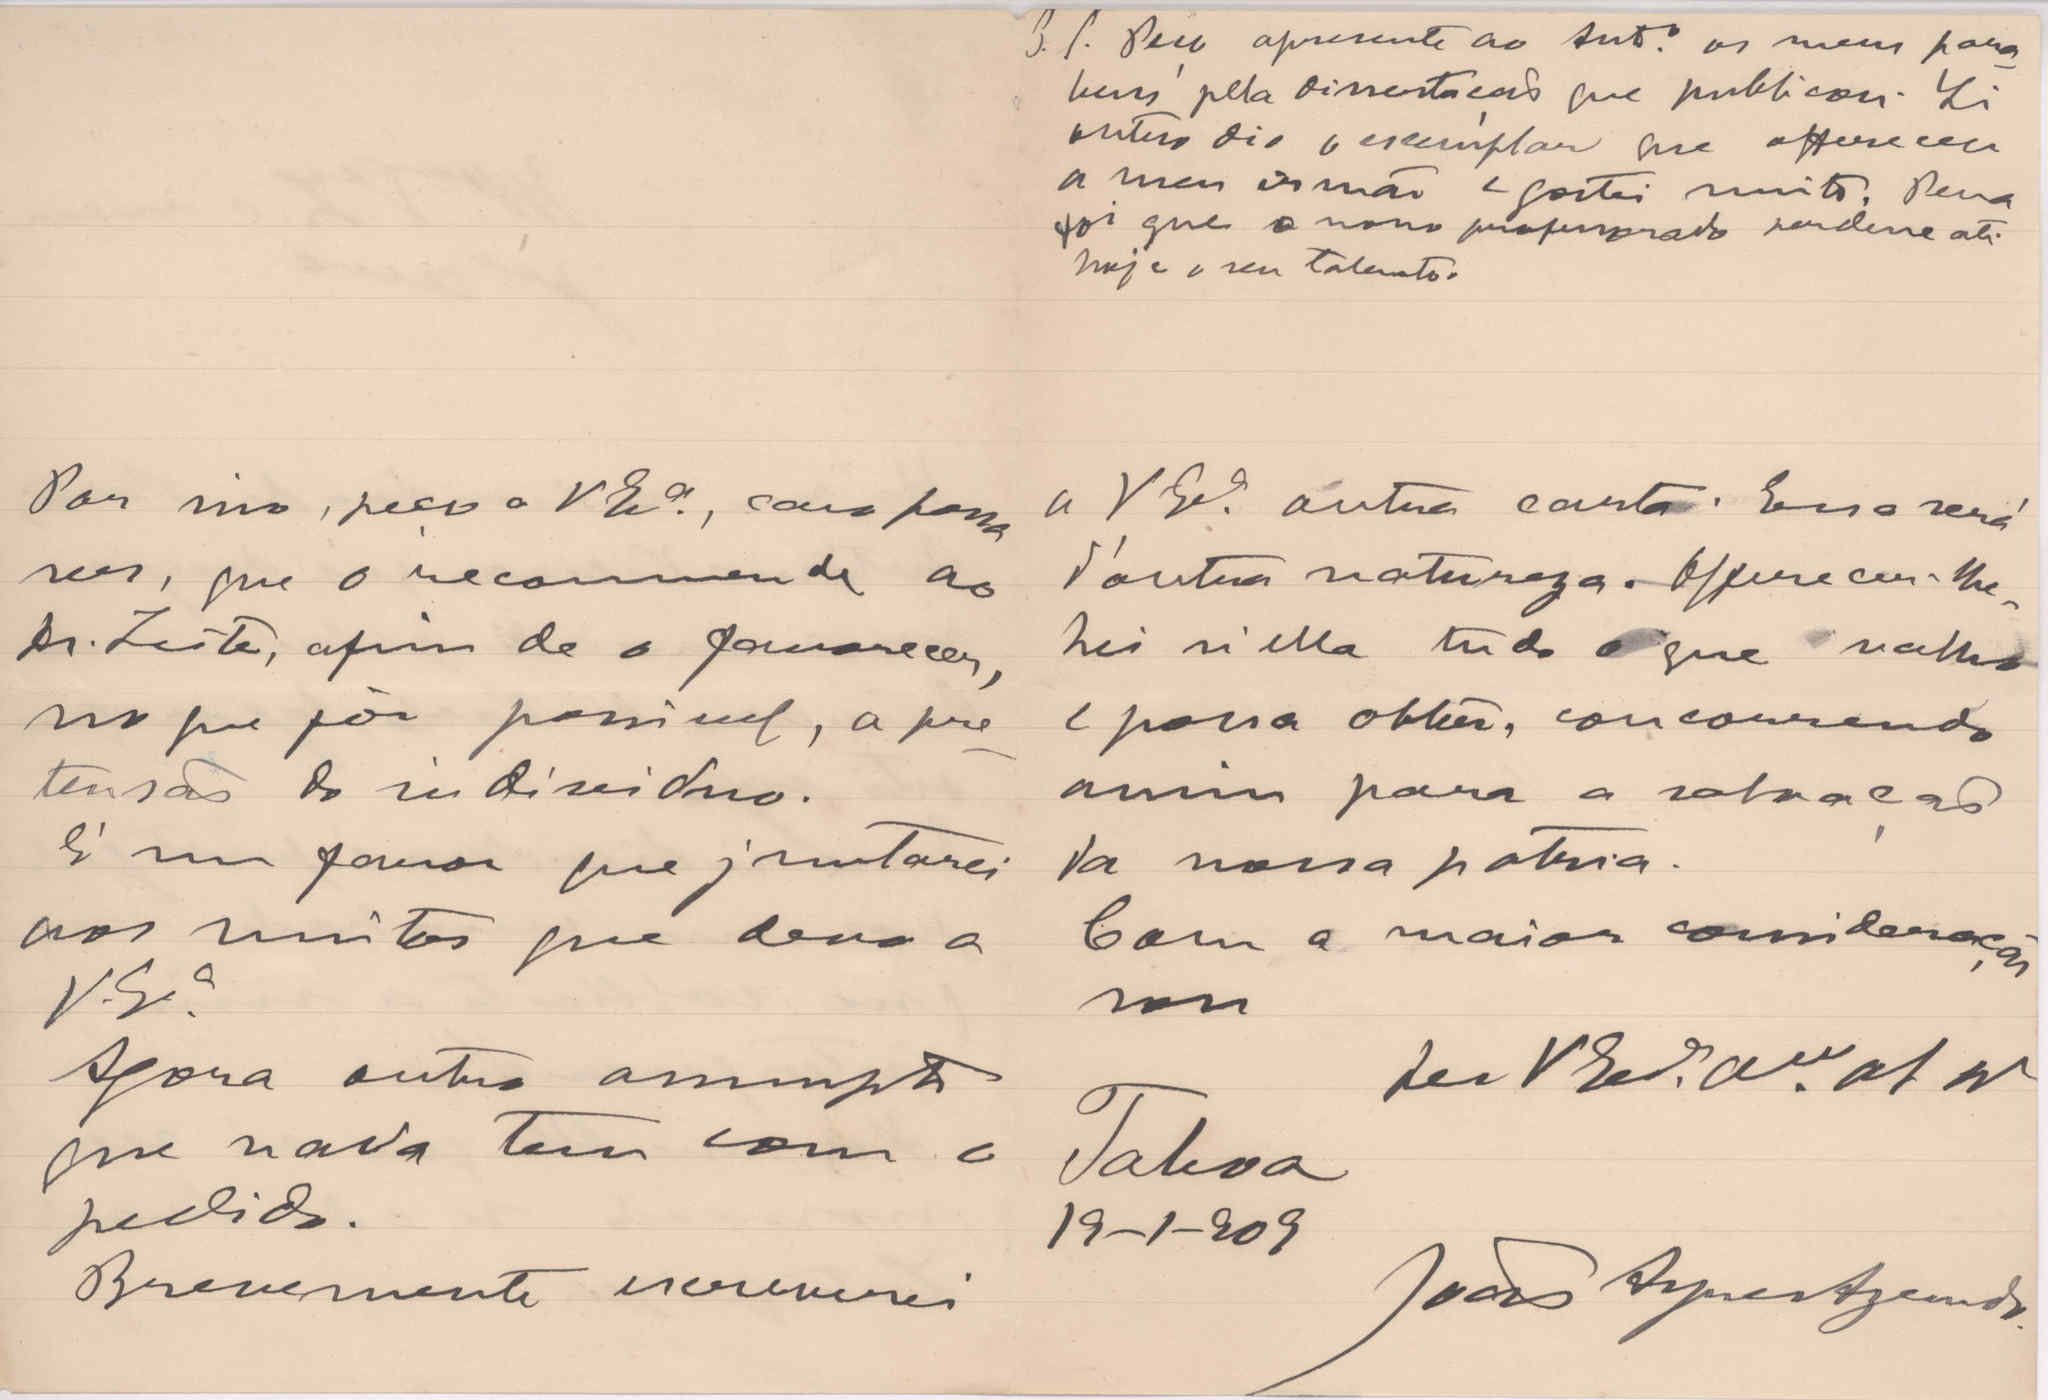 Por isso, peço a V Exª., caso possa
ser, que o recommende ao
Dr. Leite, afim de o favorecer,
no que fôr possivel, a pre-
tensão do individuo.
É um favor que juntarei
aos muitos que devo a
V. Exª.
Agora outro assumpto
que nada tem com o
pedido.
Brevemente escreverei
a V Exª. outra carta. Essa será
d'outra natureza. Offerecer-lhe-
hei n'ella tudo o que valho
e possa obter, concorrendo
assim para a salvação
da nossa pátria.
Com a maior consideração
sou
De V Exª.
Taboa
19-1-909
João Ayres Azevedo.
P. S. Peço apresente ao Antº. os meus para-
bens pela dissertação que publicou. Li
outro dia o exemplar que offereceu
a meu irmão e gostei muito. Pena
foi que o nosso professorado perdesse até
hoje o seu talento.